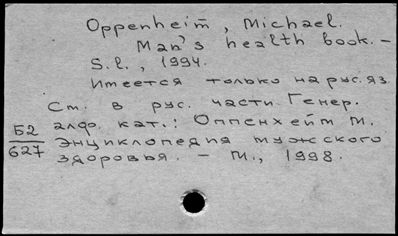 Oppenheim, Michael.
Man's health book. –
S.l., 1994.
Имеется только на рус. яз.
Ст. в рус. части Генер.
алф. кат.: Оппенхейт М.
Б2
627
Энциклопедия мужского
здоровья. – М., 1998.